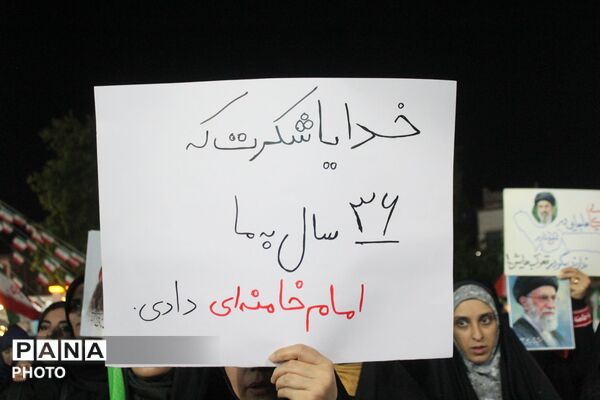 خدایا شکرت که
۳۶ سال به ما
امام خامنه‌ای دادی.
PANA
PHOTO